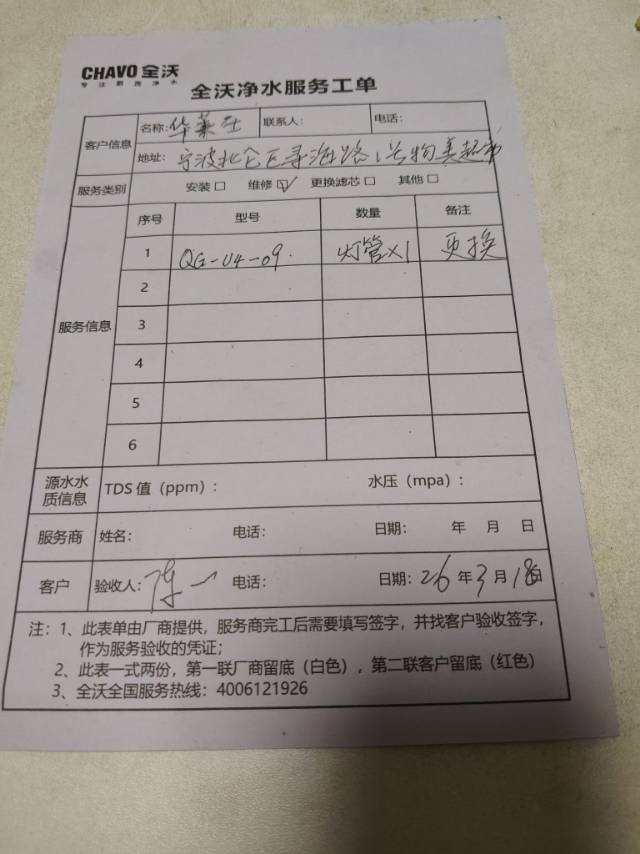 CHAVO 全沃
专注厨房净水
全沃净水服务工单
客户信息 名称: 华莱士 联系人: 电话:
地址: 宁波北仑区寻海路1号物美超市
服务类别 安装□ 维修☑ 更换滤芯□ 其他□
服务信息 序号 型号 数量 备注
1 QG-U4-09. 灯管X1 更换
2
3
4
5
6
源水水质信息 TDS 值（ppm）: 水压（mpa）:
服务商 姓名: 电话: 日期: 年 月 日
客户 验收人: 电话: 日期: 26年3月18日
注: 1、此表单由厂商提供，服务商完工后需要填写签字，并找客户验收签字，
作为服务验收的凭证;
2、此表一式两份，第一联厂商留底（白色），第二联客户留底（红色）
3、全沃全国服务热线: 4006121926